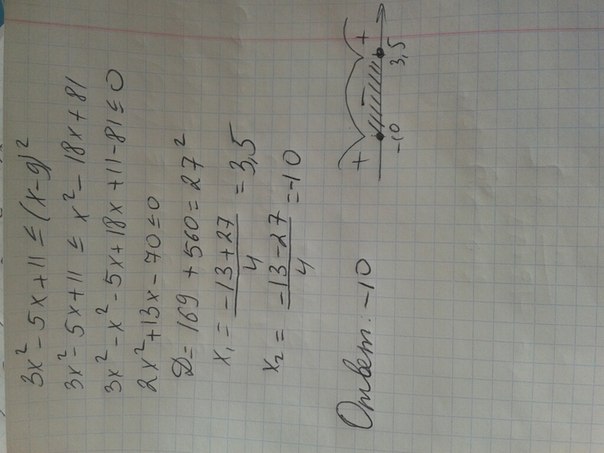 3x² - 5x + 11 ≤ (x-9)²
3x² - 5x + 11 ≤ x² - 18x + 81
3x² - x² - 5x + 18x + 11 - 81 ≤ 0
2x² + 13x - 70 ≤ 0
D = 169 + 560 = 27²
x₁ = (-13+27)/4 = 3,5
x₂ = (-13-27)/4 = -10
+ - +
-10 3,5
Ответ: -10